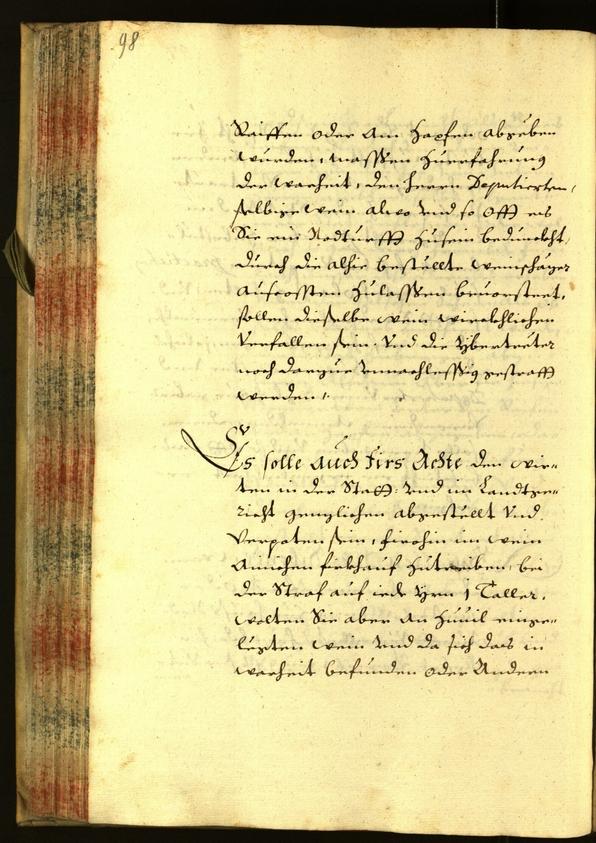 98
Raiffen oder am Hapfen abgeben
wurden, massen zu erfahrung
der warheit, den herrn Deputierten,
selbige wein alwo vnd so offt es
Sie ein Nodturfft zu sein bedunckht,
durch die alhie bestellte weinschäzer
aufcossten zulassen beuorsteet,
sollen dieselbe wein würckhlichen
verfallen sein. Vnd die Ybertreter
noch darzue vnnachlessig gestrafft
werden.
Es solle auch firs Achte den wir-
ten in der Statt: vnd im Landtge-
richt genzlichen abgestellt vnd
verpoten sein, firohin im wein
ainichen firkhauf zutreiben, bei
der Straf auf iede Yrn 1 Taller.
wolten Sie aber an zuuil einge-
legten wein vnd da sich das in
warheit befunden oder Andern